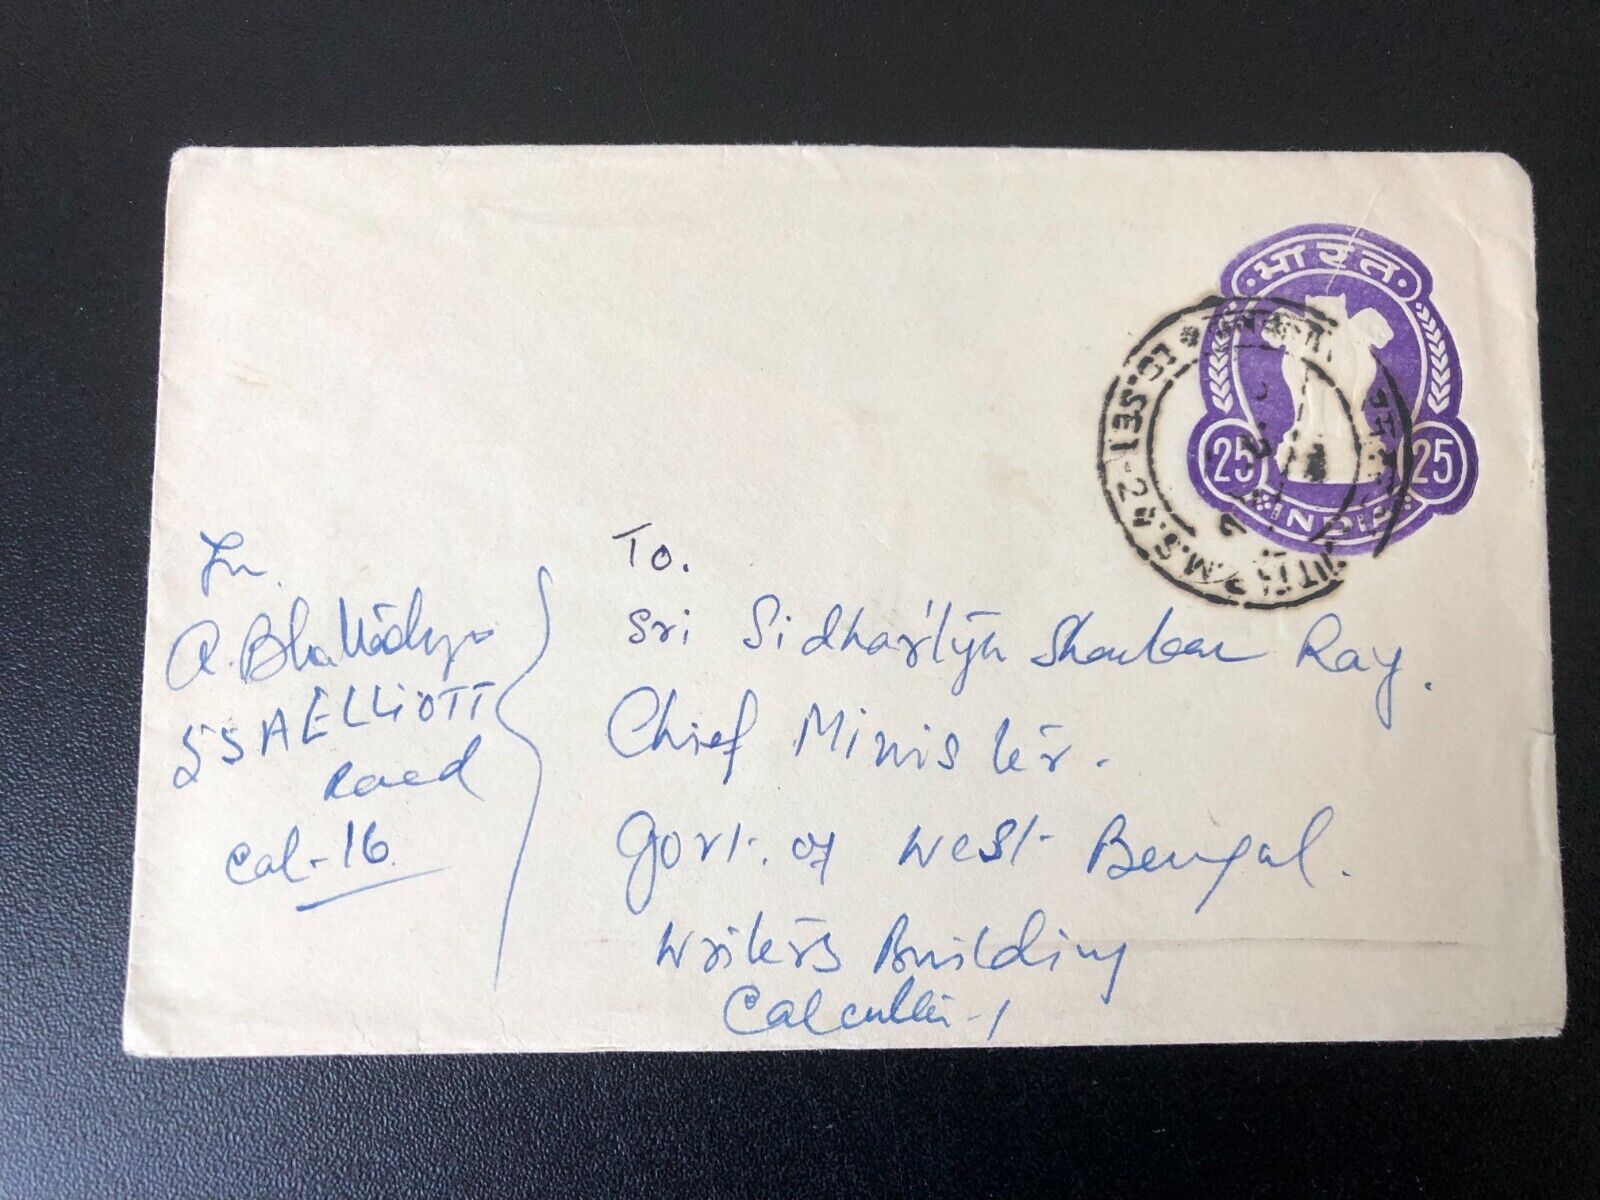 भारत
25 25
INDIA
R.M.S.
To.
Sri Sidhartha Shankar Ray.
Chief Minister.
Govt. of West Bengal.
Writers Building
Calcutta-1
Fr.
A. Bhattacharya
55A ELLIOTT
Road
Cal-16